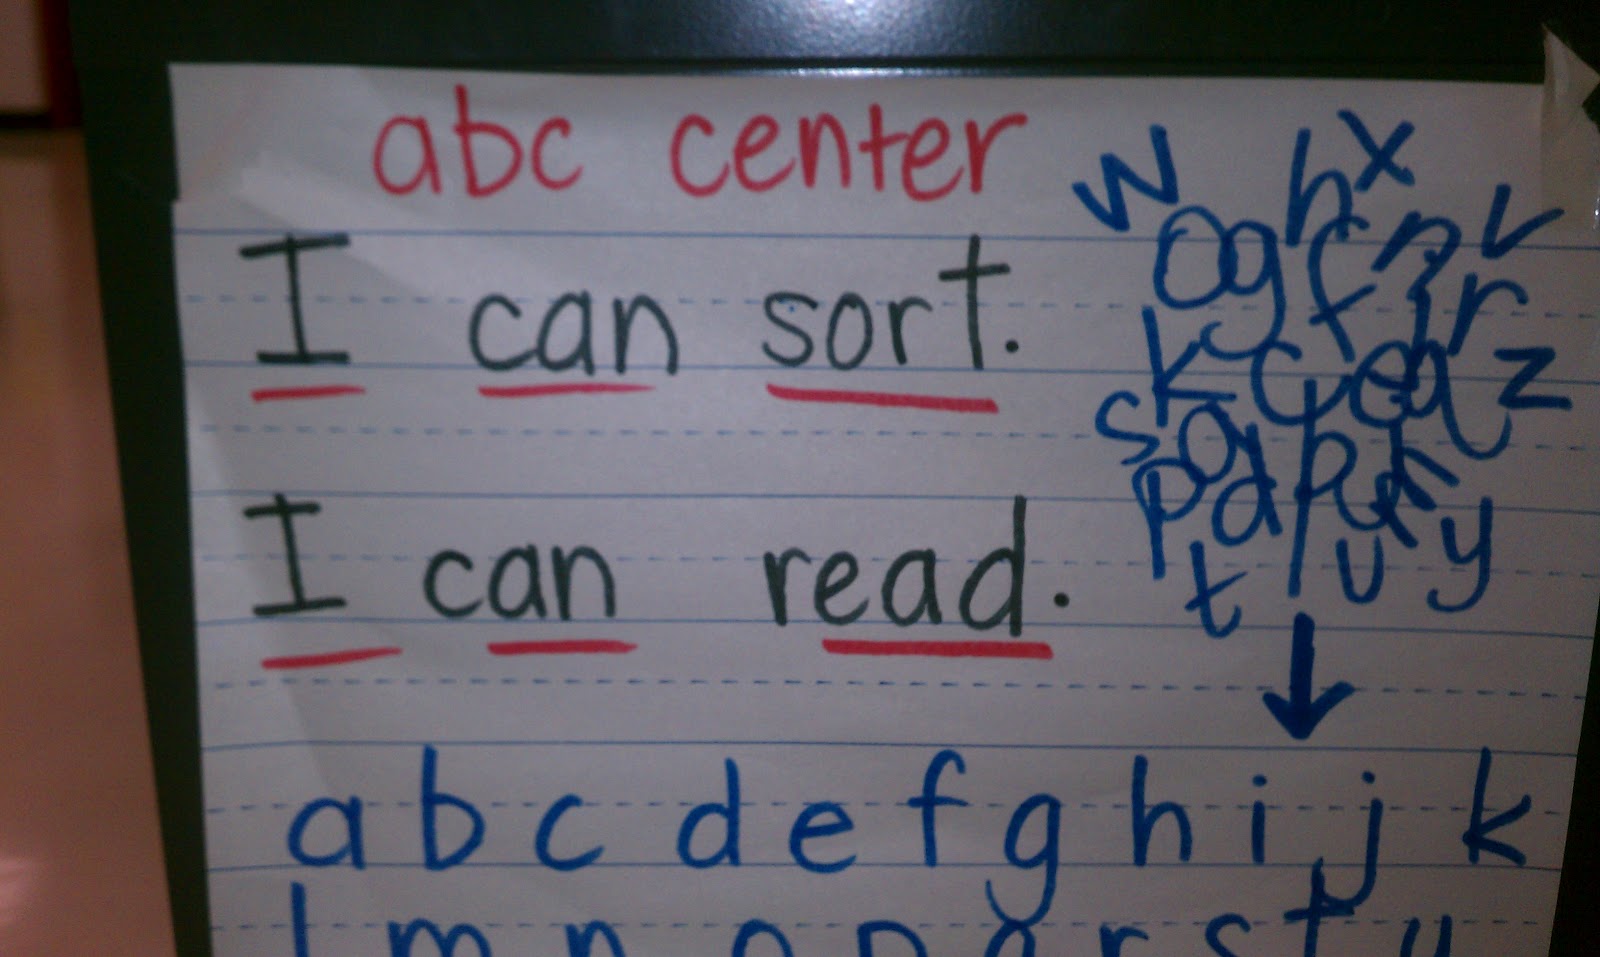 abc center
I can sort.
I can read.
w h x
o g f n v
k c e q z
s a
p d
t u y
a b c d e f g h i j k
l m n o p q r s t u